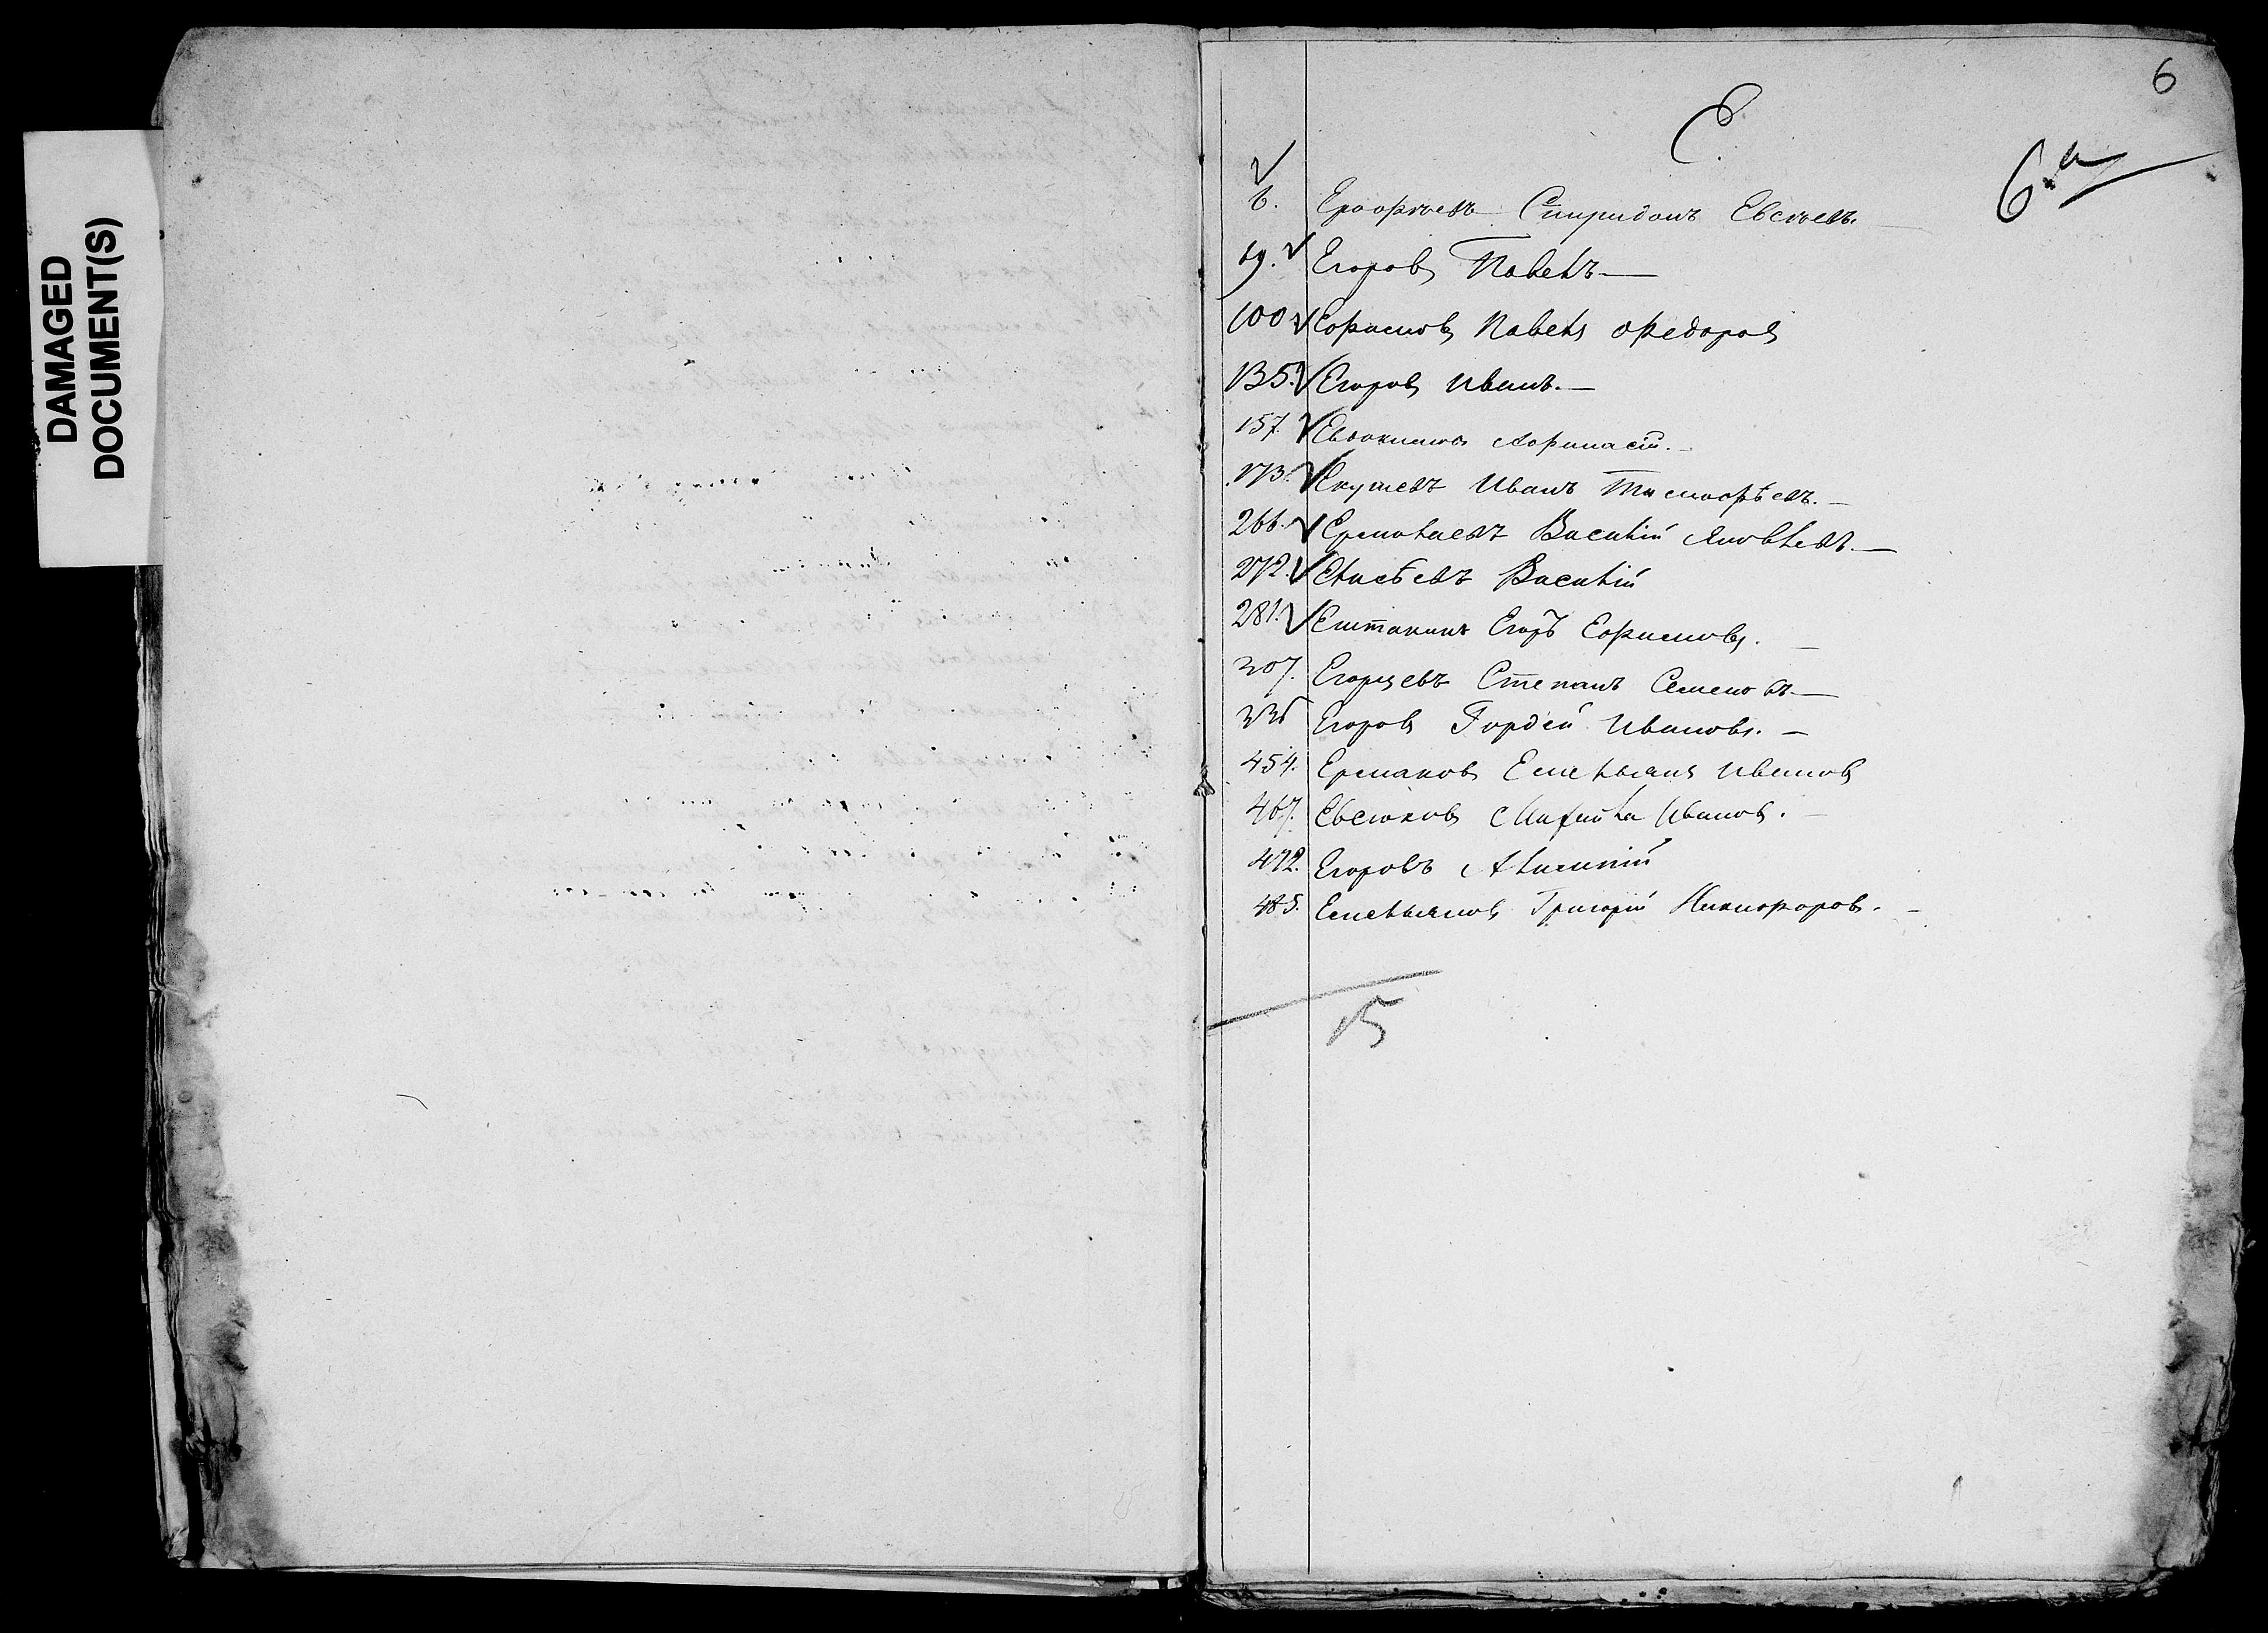 DAMAGED
DOCUMENT(S)
6
Е.
6.
6. Ерофѣевъ Спиридонъ Евсѣевъ.
69. Егоровъ Павелъ
100 Ефимовъ Павелъ Федоровъ
135. Егоровъ Иванъ.
157. Евдокимовъ Афанасій.
173. Екушевъ Иванъ Тимофѣевъ.
266. Ермолаевъ Василій Яковлевъ.
272. Елисѣевъ Василій
281. Ештокинъ Егоръ Ефимовъ.
307. Егорцевъ Степанъ Семеновъ
Егоровъ Гордей Ивановъ.
454. Ермаковъ Емельянъ Ивановъ
467. Евсюковъ Михайла Ивановъ.
472. Егоровъ
485. Емельяновъ Григорій Никифоровъ.
15